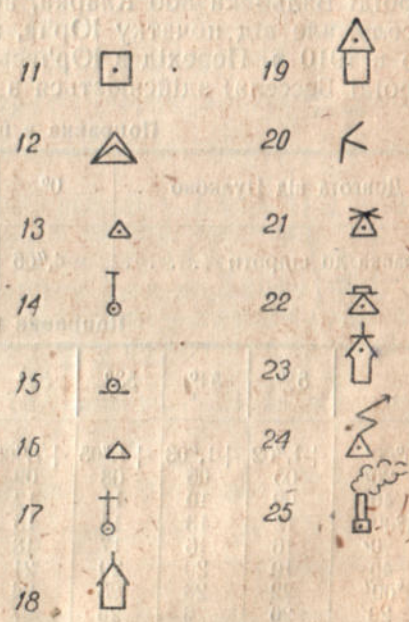 11
12
13
14
15
16
17
18
19
20
21
22
23
24
25